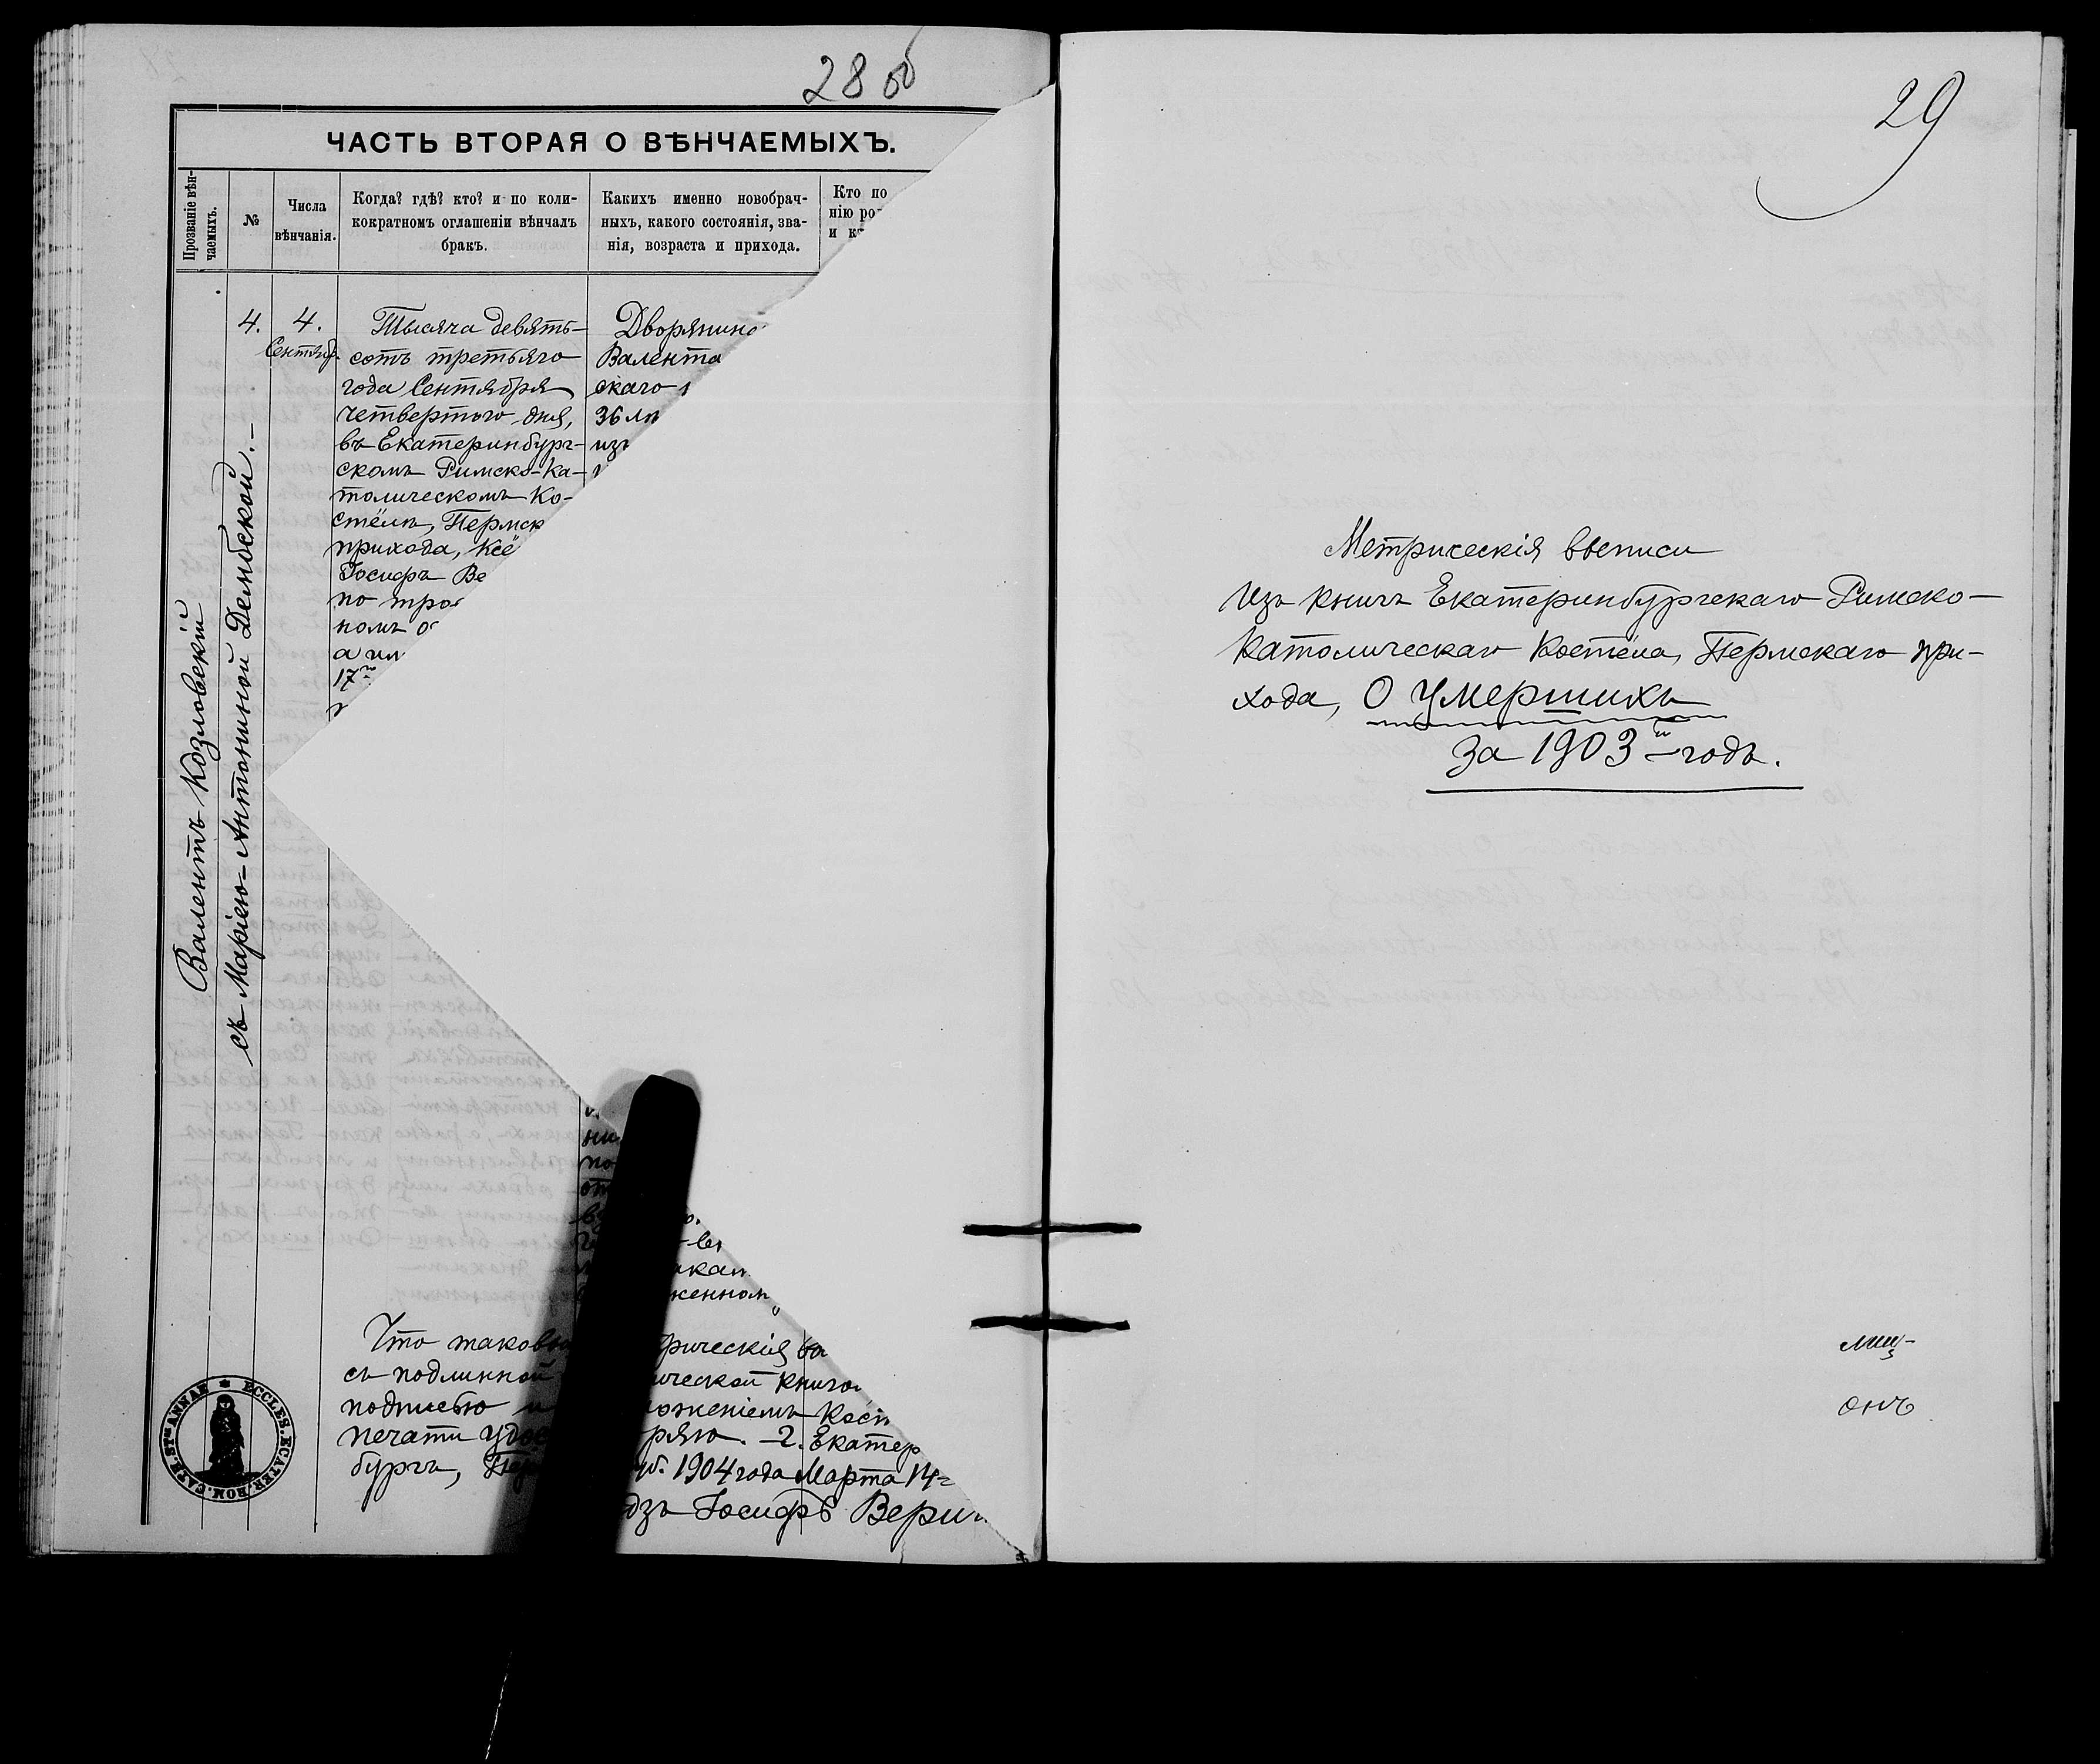 28 об
ЧАСТЬ ВТОРАЯ О ВѢНЧАЕМЫХЪ.
Прозваніе вѣн-
чаемыхъ.
№
Числа
вѣнчанія.
Когда? гдѣ? кто? и по коли-
кократномъ оглашеніи вѣнчалъ
бракъ.
Каихъ именно новобрач-
ныхъ, какого состоянія, зва-
нія, возраста и прихода.
Кто по
нію
и
Валентъ Козловскій
съ Маріею-Антониной Дембской.
4.
4.
Сентябр.
Тысяча девять-
сотъ третьяго
года Сентября
четвертого дня,
въ Екатеринбург-
скомъ Римско-Ка-
толическомъ Ко-
стёлѣ, Пермск
прихода, Ксё
Іосифъ Ве
по тро
номъ
а
17
Дворянино
Валента
скаго
36 лѣ
изъ
ни
по
кенном
Что таковы рическія
съ подлинной ической книго
подписью и ложеніемъ Кост
печати удос ряю. — г. Екатер
бургъ, Пер уб. 1904 года Марта 14
дзъ Іосифъ Вери
ECCLES. ECATER. ROM. CATH. STAE ANNAE
29
Метрическія выписи
Изъ книгъ Екатеринбургскаго Римско-
Католическаго Костёла, Пермскаго при-
хода, О Умершихъ
За 1903й годъ.
онъ